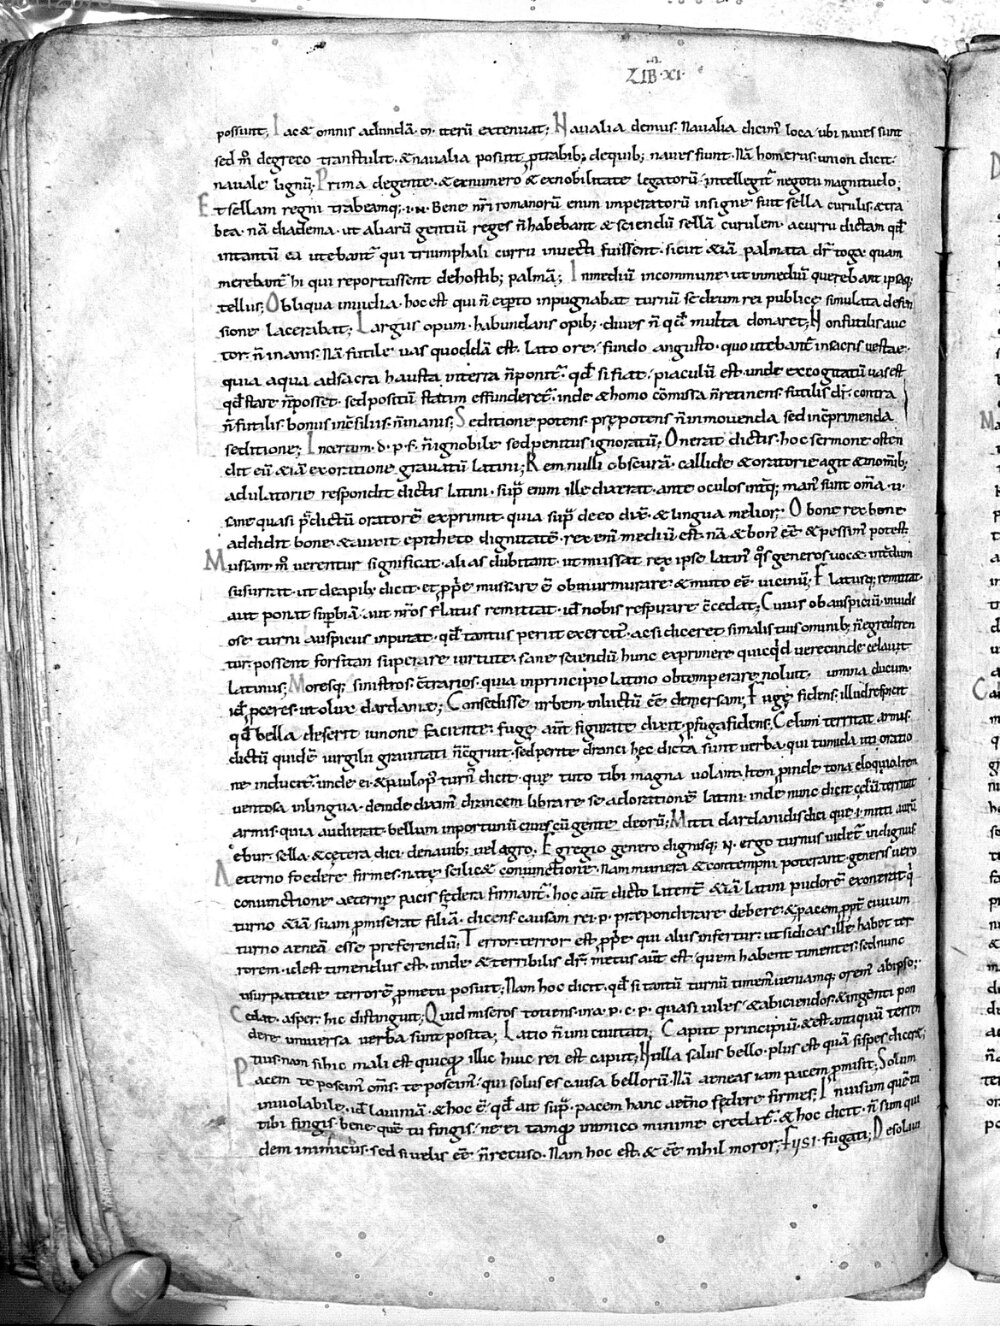 LIB·XI·
possunt; Iac& omnis adundā· m̄· iterū extenuat; Naualia demus· Naualia dicim̄ loca ubi naues sunt
sed m̄ degreco transtulit· & naualia posuit deqiub; naues fiunt· Nā homerus· union dicit·
nauale lignū; Prima degente· & exnumero & exnobilitate legatorū· intellegit̄ negotii magnitudo;
Et sellam regni trabeamq;· i·N· Bene n̄ri romanorū enim imperatorū insigne fuit sella curulis· & tra
bea· nā diadema· ut aliarū gentiū reges n̄ habebant & sciendū sellā curulem· acurru dictam qđ
intantū ea utebant̄ qui triumphali curru inuecti fuissent· sicut &iā palmata dr̄ toga quam
merebant̄ hi qui reportassent dehostib; palmā; Inmediū incommune· ut inmediū querebant ipsaq;
tellus; Obliqua inuidia· hoc est qui n̄ inpugnabat turnū sedrum rei publicę simulata defen
sione lacerabat; Largus opum· habundans opib;· diues n̄ qđ multa donaret; Non futilis auc
tor· n̄ inanis· Nā futile uas quoddā est· lato ore· fundo angusto· quo utebant̄ insacris uestae·
quia aqua adsacra hausta interra n̄ ponit̄· qđ si fiat· piaculū est· unde excogitatū uas est
qđ stare n̄ posset· sed positū statim effunderet̄· inde & homo cōmissa n̄ retinens futilis dr̄· contra
n̄ futilis· bonus incōsiliis· n̄ inanis; Seditione potens· prępotens n̄ inmouenda sed incōprimenda
seditione; Incertum· d· p· f· n̄ ignobile sed penitus ignoratū; Onerat dictis· hoc sermone osten
dit eū &iā exoratione grauatū latini; Rem nulli obscurā· callide & oratorie agit
adulatorie respondit dictis latini· supͣ enim ille dixerat· ante oculos intͣq; man̄ sunt om̄ia·
sane quasi p̄dictū oratorē exprimit· quia supͣ deeo dix̄· & lingua melior; O bone rex bene
addidit bone· & auxit epitheto dignitatē· rex enī mediū est· nā & bon̄ eē & pessim̄ potest
Mussant m̄ uerentur significat· alias dubitant· ut mussat rex ipse latin̄ q̄s generos uoc&
susurrat· ut deapib; dicit· et mussare ē obmurmurare & muto eē uicinū; Flatusq; remittat·
aut ponat suꝑbiā· aut n̄ros flatus remittat· id̄ nobis respirare cōcedat; Cuius ob auspiciū
ose turni auspiciis inputat· qđ tantus periit exercit̄· acsi diceret si malis tuis ominib; n̄ egrediren
tur· possent forsitan superare uirtute· sane sciendū hunc exprimere quicq̄d uerecunde celauit
latinus; Moresq; sinistros· cōtrarios· quia inprincipio latino obtemperare noluit·
id̄ ꝓceres· ut oliuę dardanię; Consedisse urbem· inluctū eē demersam; Fugę fidens·
qđ bella deserit iunone faciente· fugę aūt figurate dixit ꝓfuga fidens; Cęlum territat armis·
dictū quidē uirgilii grauitati n̄ cōgruit· sed perite dranci hęc dicta sunt uerba· qui tumida uti oratio
ne inducit̄· unde ei & paulopͣ turn̄ dicit· quę tuto tibi magna uolant· Item tona eloquio
uentosa inlingua· deinde drancem librare se adorationē latini· inde nunc dicit territat
armis· quia audierat· bellum inportunū ciues cū gente deorū; Mitti dardanidis dici que· i· mitti aurū
ebur· sella· & cętera dici denauib; uel agro; Egregio genero dignisq; N· ergo turnus uidet̄ indignus
Aeterno foedere firmes· natę scilic& coniunctione· Nam munera & contempni poterant· generis uero
coniunctione aeternę pacis fędera firmant̄· hoc aūt dicto latent̄ &iā latini pudorē exonerat q̄
turno &iā suam ꝓmiserat filiā· dicens causam rei p· pręponderare debere· & pacem ꝓpt̄ ciuium
turno aeneā esse preferendū; Terror· terror est qui aliis infertur· ut si dicas ille habet ter
rorem· idest timendus est· unde & terribilis dr̄· metus aūt est· quem habent timentes· sed nunc
usurpatiue terrorē ꝓ metu posuit; Nam hoc dicit· qđ si tantū turnū timem̄
Cedat· asper hic distinguit; Quid miseros totiens inra· p· c· p· quasi uiles· & abiciendos· & ingenti pon
dere uniuersa uerba sunt posita; Latio n̄ uni ciuitati; Caput principiū· & est antiquū
tius· nam sibic mali est quicq̄d illic huic rei est caput; Nulla salus bello· plus est quā si spes diceret;
Pacem te poscim̄ om̄s· te poscim̄· qui solus es causa bellorū· Nā aeneas iam pacem ꝓmisit; Solum
inuiolabile· id̄ lauiniā· & hoc ē qđ ait supͣ· pacem hanc aet̄no fędere firmes; Inuisum quē tu
tibi fingis· bene quē tu fingis· ne ei tamq̄ inimico minime credat̄· & hoc dicit· n̄ sum qui
dem inimicus· sed si uelis eē n̄ recuso· Nam hoc est· & eē nihil moror; Fusi· fugati; Desolaui